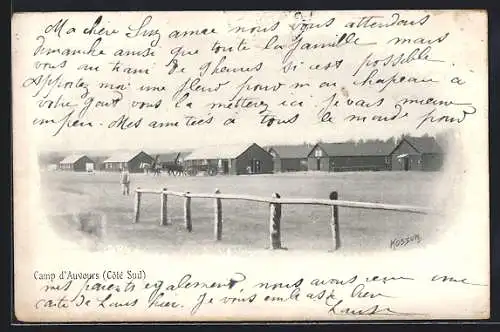 Ma chère Suz amae nous vous attendons
dimanche ainsi que toute la famille mais
vous au train de 9 heures si c'est possible.
Apportez moi une fleur pour m on chapeau à
votre gout vous la metterez ici. je vais mieux
un peu. Mes amitiés à tous le monde pour
KOSSUM
Camp d'Auvours (Côté Sud)
mes parents également, nous avons reçu une
carte de Laurs hier. Je vous embrasse bien
Laurse